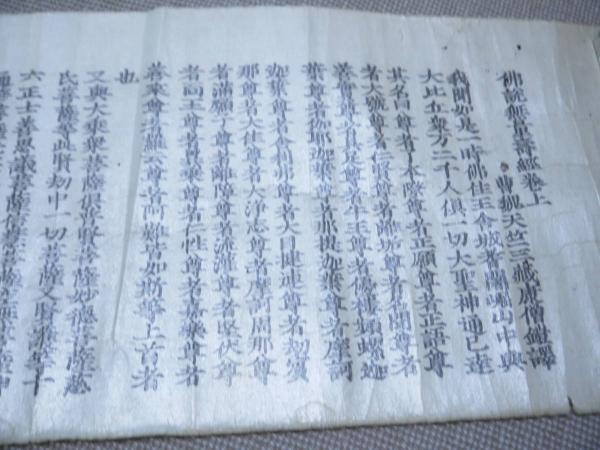 佛說無量壽經卷上
曹魏天竺三藏康僧鎧譯
我聞如是一時佛住王舍城耆闍崛山中與
大比丘衆万二千人俱一切大聖神通已達
其名曰尊者了本際尊者正願尊者正語尊
者大號尊者仁賢尊者離垢尊者名聞尊者
善實尊者具足尊者牛王尊者優樓頻螺迦
葉尊者伽耶迦葉尊者那提迦葉尊者摩訶
迦葉尊者舍利弗尊者大目揵連尊者劫賓
那尊者大住尊者大淨志尊者摩訶周那尊
者滿願子尊者離障尊者流灌尊者堅伏尊
者面王尊者異乘尊者仁性尊者嘉樂尊者
善來尊者羅云尊者阿難皆如斯等上首者
也
又與大乘衆菩薩俱普賢菩薩妙德菩薩慈
氏菩薩等此賢劫中一切菩薩又賢護等十
六正士善思議菩薩信慧菩薩空無菩薩神